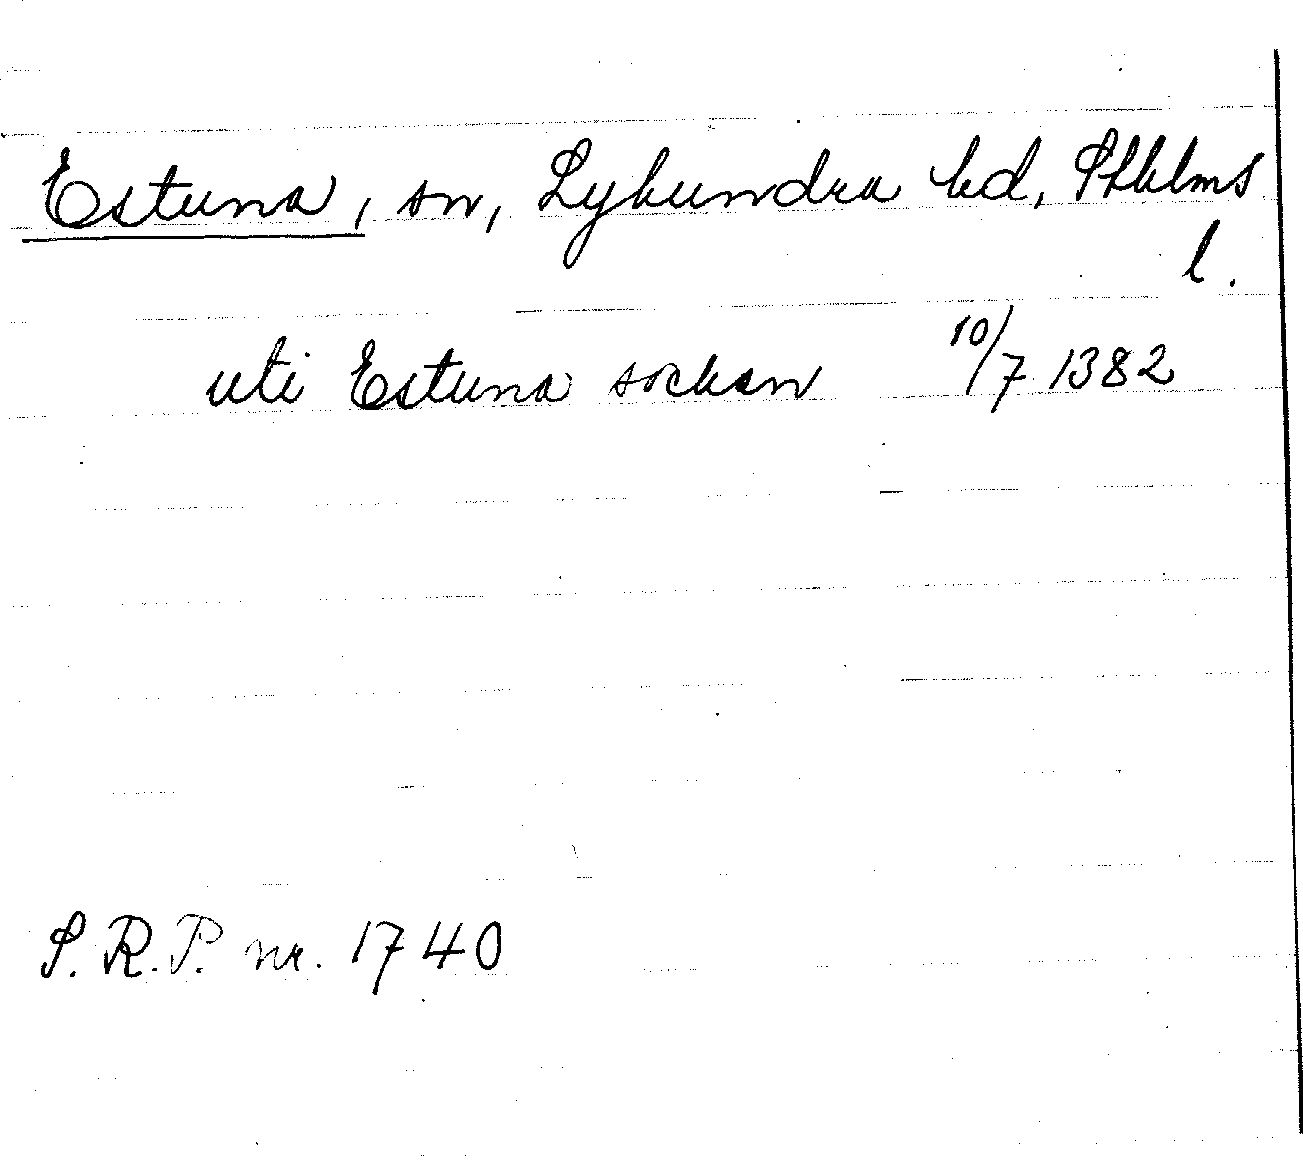 Estuna, sn, Lyhundra hd, Sthlms
l.
uti Estuna sockn 10/7 1382
S.R.P. nr. 1740